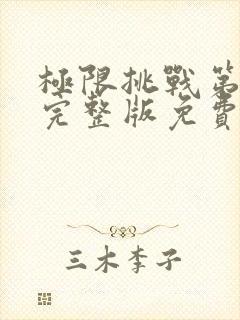 極限挑戰第
完整版免費
三木李子